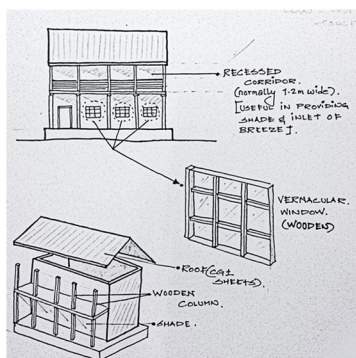 RECESSED
CORRIDOR.
(normally 1.2m wide).
[USEFUL IN PROVIDING
SHADE & INLET OF
BREEZE].
VERNACULAR.
WINDOW.
(WOODEN)
ROOF(CGI
SHEETS).
WOODEN
COLUMN.
SHADE.